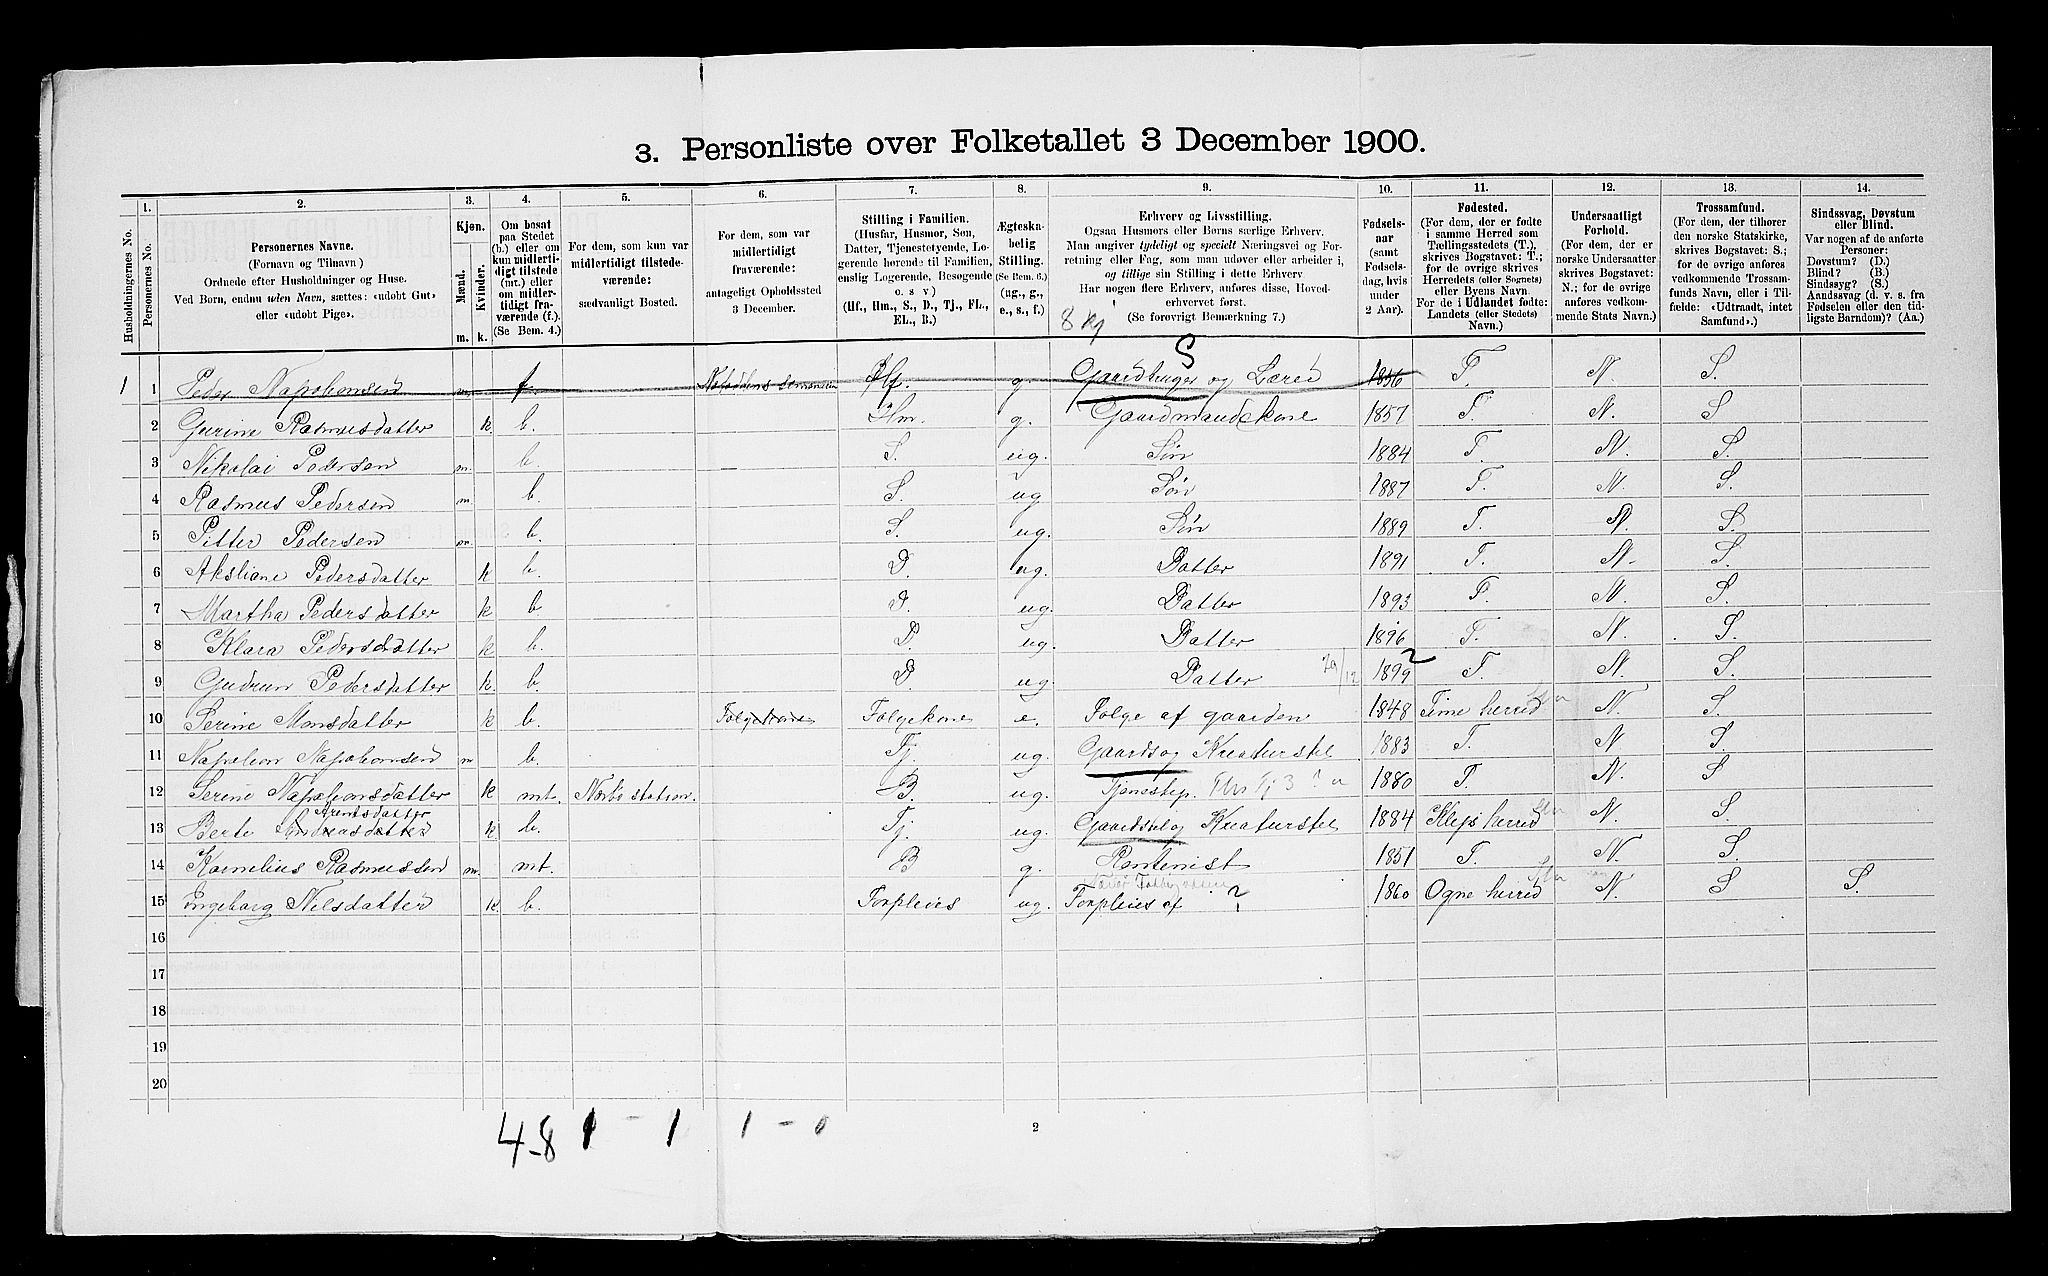 3. Personliste over Folketallet 3 December 1900.
Husholdningernes No.
1. Personernes No.
2. Personernes Navne. (Fornavn og Tilnavn) Ordnede efter Husholdninger og Huse. Ved Børn, endnu uden Navn, sættes: «udøbt Gut» eller «udøbt Pige».
3. Kjøn. Mænd. m. Kvinder. k.
4. Om bosat paa Stedet (b.) eller om kun midlertidigt tilstede (mt.) eller om midlertidigt fraværende (f.). (Se Bem. 4.)
5. For dem, som kun var midlertidigt tilstedeværende: sædvanligt Bosted.
6. For dem, som var midlertidigt fraværende: antageligt Opholdssted 3 December.
7. Stilling i Familien. (Husfar, Husmor, Søn, Datter, Tjenestetyende, Logerende hørende til Familien, enslig Logerende, Besøgende o. s v) (Hf., Hm., S., D., Tj., FL., EL., B.)
8. Ægteskabelig Stilling. (Se Bem. 6.) (ug., g., e., s., f.)
9. Erhverv og Livsstilling. Ogsaa Husmors eller Børns særlige Erhverv. Man angiver tydeligt og specielt Næringsvei og Forretning eller Fag, som man udøver eller arbeider i, og tillige sin Stilling i dette Erhverv. Har nogen flere Erhverv, angives disse, Hovederhvervet først. (Se forøvrigt Bemærkning 7.)
10. Fødselsaar (samt Fødselsdag, hvis under 2 Aar).
11. Fødested. (For dem, der er fødte i samme Herred som Tællingsstedets (T.), skrives Bogstavet: T.; for de øvrige skrives Herredets (eller Sognets) eller Byens Navn. For de i Udlandet fødte: Landets (eller Stedets) Navn.)
12. Undersaatligt Forhold. (For dem, der er norske Undersaatter skrives Bogstavet: N.; for de øvrige anføres vedkommende Stats Navn.)
13. Trossamfund. (For dem, der tilhører den norske Statskirke, skrives Bogstavet: S.; for de øvrige anføres vedkommende Trossamfunds Navn, eller i Tilfælde: «Udtraadt, intet Samfund».)
14. Sindssvag, Døvstum eller Blind. Var nogen af de anførte Personer: Døvstum? (D.) Blind? (B.) Sindssyg? (S.) Aandssvag (d. v. s. fra Fødselen eller den tidligste Barndom)? (Aa.)
S
1 1 Peder Napoleonsen m. f. Hf. g. Gaardbruger og Lærer 1856 T. N. S.
2 Gurine Rasmusdatter k b. Hm. g. Gaardmandskone 1857 T. N. S
3 Nikolai Pedersen m. b. S. ug. Søn 1884 T. N. S.
4 Rasmus Pedersen m. b. S. ug Søn 1887 T. N. S
5 Pitter Pedersen m. b. S. ug. Søn 1889 T. N. S.
6 Aksliane Pedersdatter k b. D. ug. Datter 1891 T. N. S.
7 Martha Pedersdatter k b D. ug. Datter 1893 T. N. S.
8 Klara Pedersdatter k b. D. ug. Datter 1896 T. N. S.
9 Gudrun Pedersdatter k. b. D ug. Datter 29/12 1899 T N. S.
10 Serine Monsdatter k b. Folgekone Folgekone e. Folge af gaarden 1848 Time herred N. S.
11 Napoleon Napoleonsen m b. Tj. ug. Gaards og Kreaturstel 1883 T. N S.
12 Serine Napoleonsdatter k mt. Nærbø station. B. ug. Tjenestep. 1880 T. N. S
Arentsdatter
13 Berte Andreasdatter k b. Tj. ug. Gaardstel og Kreaturstel 1884 Klep herred N. S.
14 Kornelius Rasmussen m. mt. B g. Rentenist 1851 T. N. S.
15 Engeborg Nilsdatter k. b. Forpleies ug. Forpleies af ? 1860 Ogne herred N. S S.
16
17
18
19
20
4-8 1 - 1 1 - 0
2